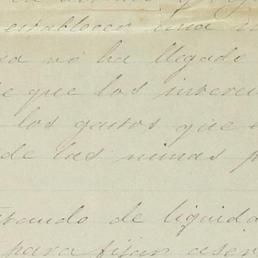 establecer una
sa no ha llegado
que los interes
los gastos que
de las minas p
trando de liquida
para fijar aser